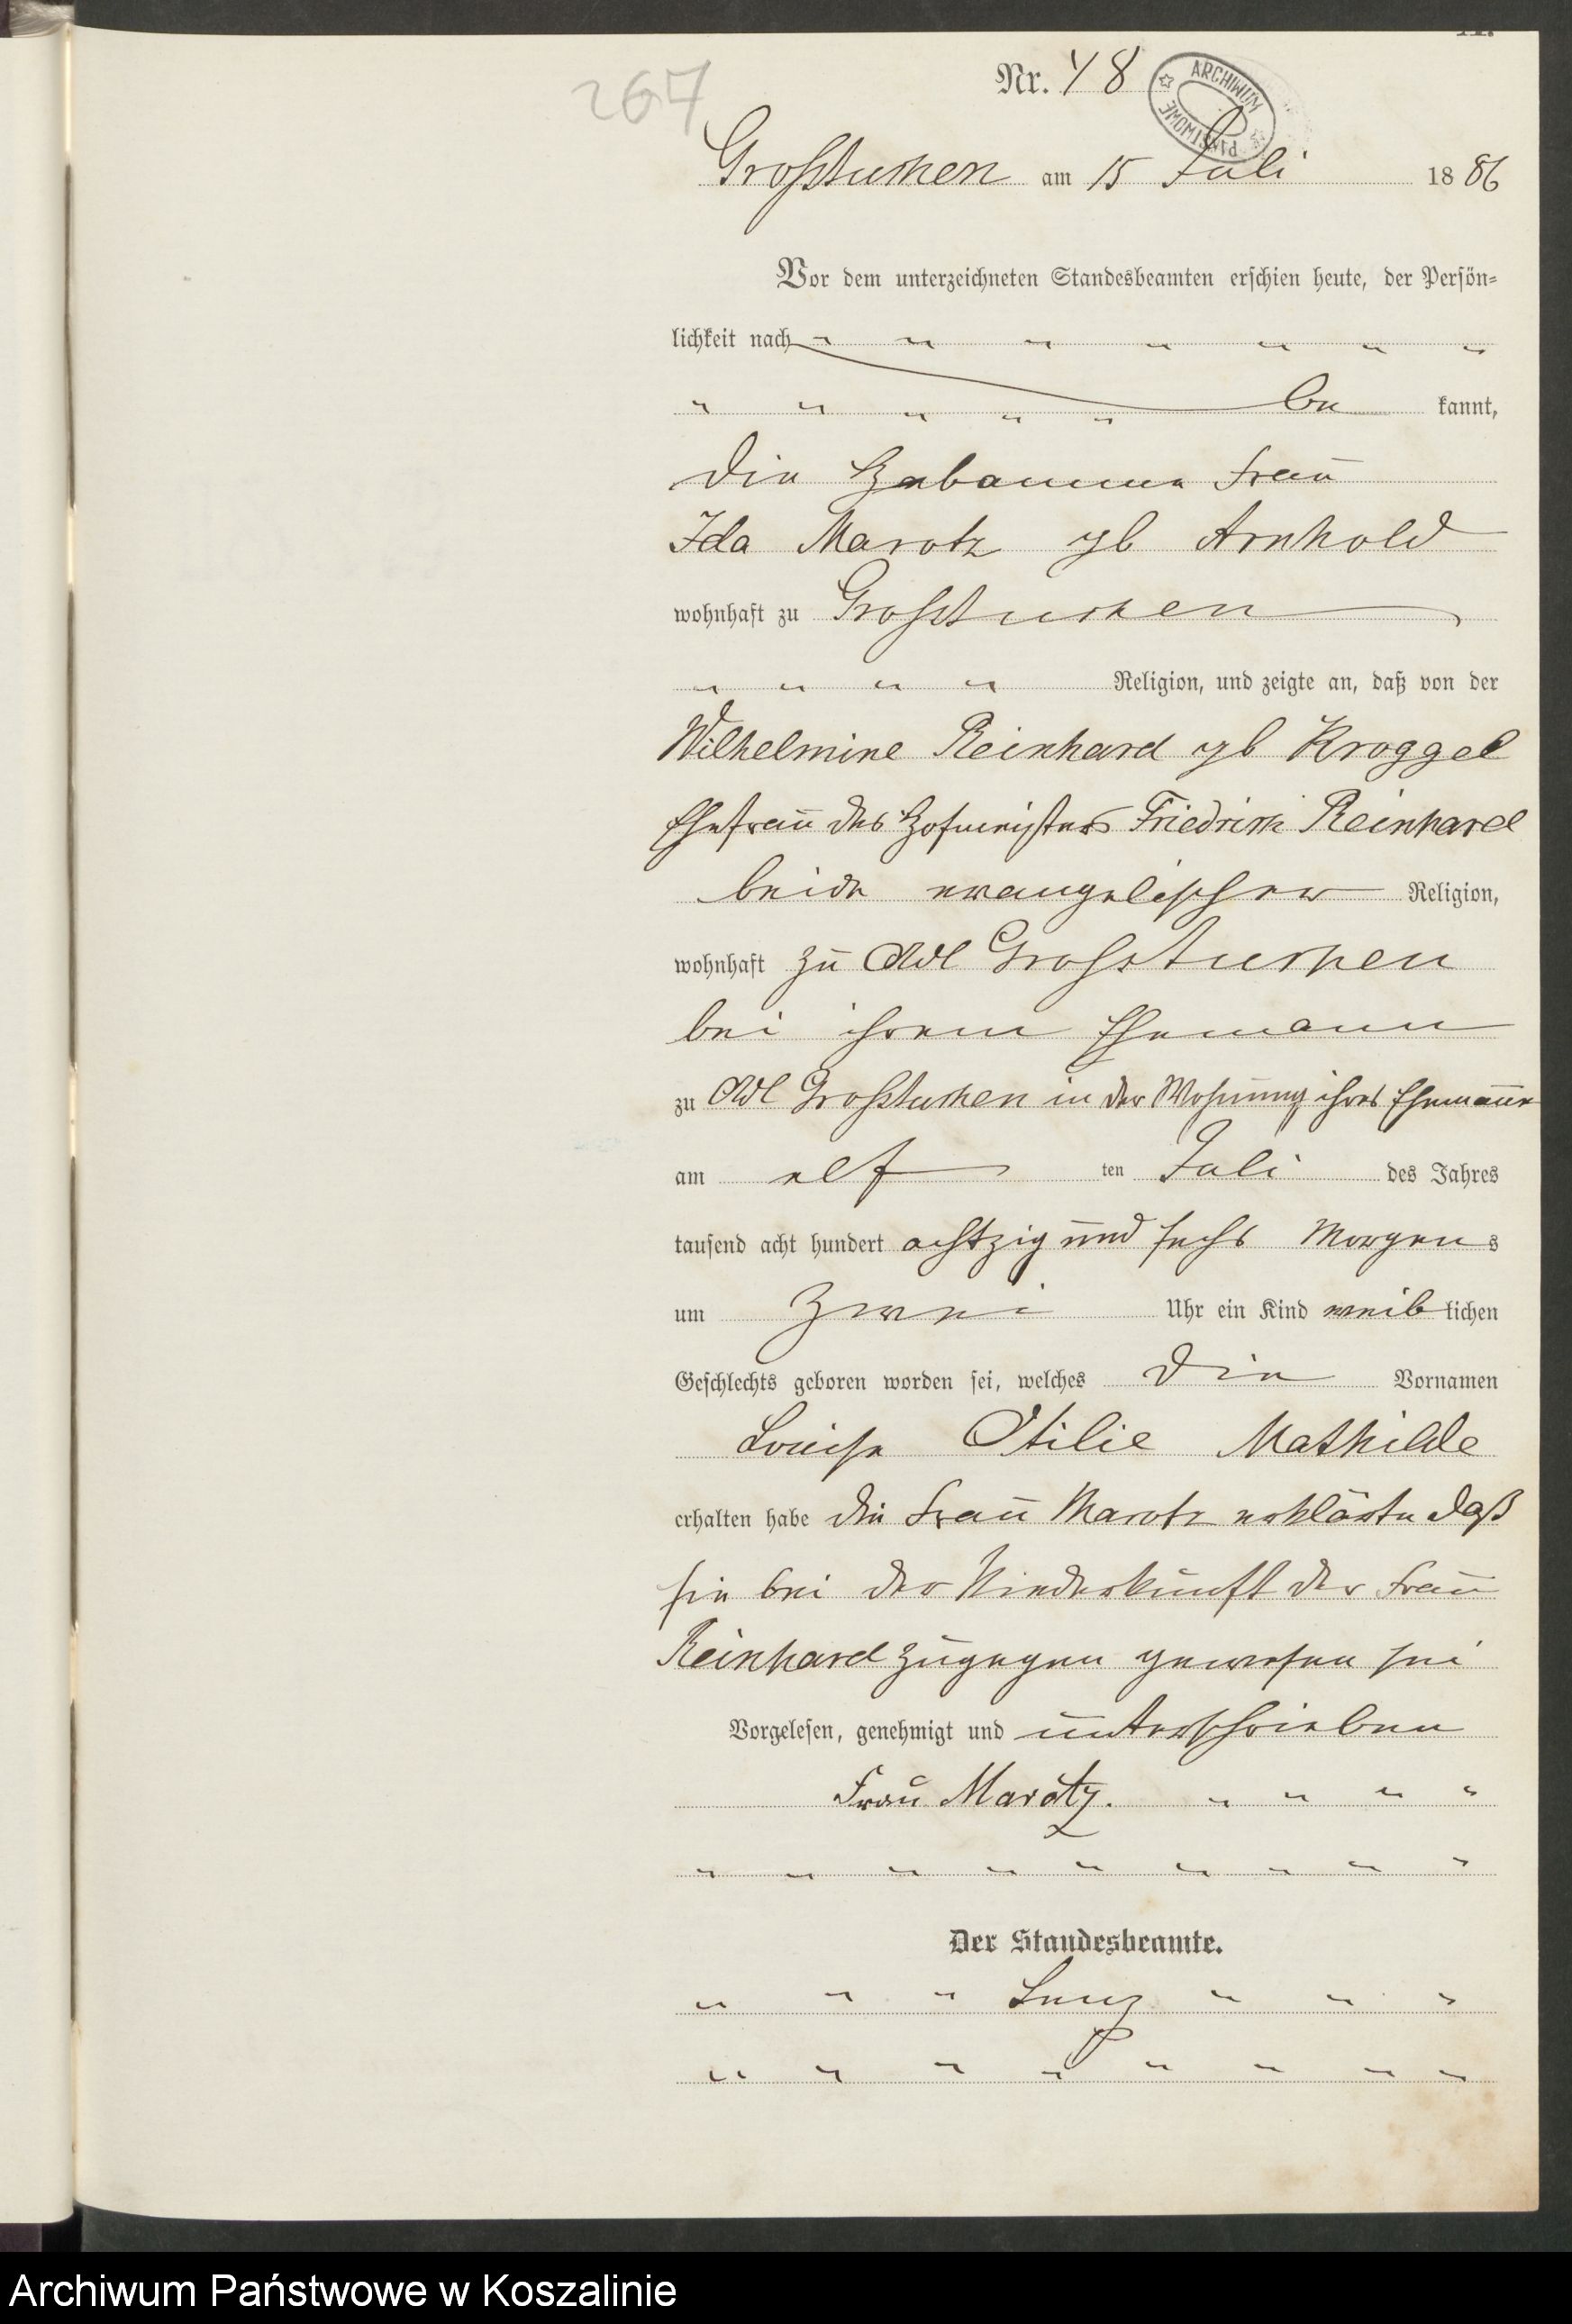 267
Nr. 48
ARCHIWUM PAŃSTWOWE
Grosstuchen am 15 Juli 1886
Vor dem unterzeichneten Standesbeamten erschien heute, der Persön=
lichkeit nach " " " " " " "
" " " " " be kannt,
die Hebamme Frau
Ida Marotz gb Arnhold
wohnhaft zu Grosstuchen
" " " " Religion, und zeigte an, daß von der
Wilhelmine Reinhard gb Kroggel
Ehefrau des Hofmeisters Friedrich Reinhard
beide evangelischer Religion,
wohnhaft zu Adl Grosstuchen
bei ihrem Ehemann
zu Adl Grosstuchen in der Wohnung ihres Ehemanns
am elf ten Juli des Jahres
tausend acht hundert achtzig und sechs Morgens
um zwei Uhr ein Kind weiblichen
Geschlechts geboren worden sei, welches die Vornamen
Louise Otilie Mathilde
erhalten habe die Frau Marotz erklärte daß
sie bei der Niederkunft der Frau
Reinhard zugegen gewesen sei
Vorgelesen, genehmigt und unterschrieben
Frau Marotz. " " " "
" " " " " " " " "
Der Standesbeamte.
" " " " " "
" " " " " " " "
Archiwum Państwowe w Koszalinie